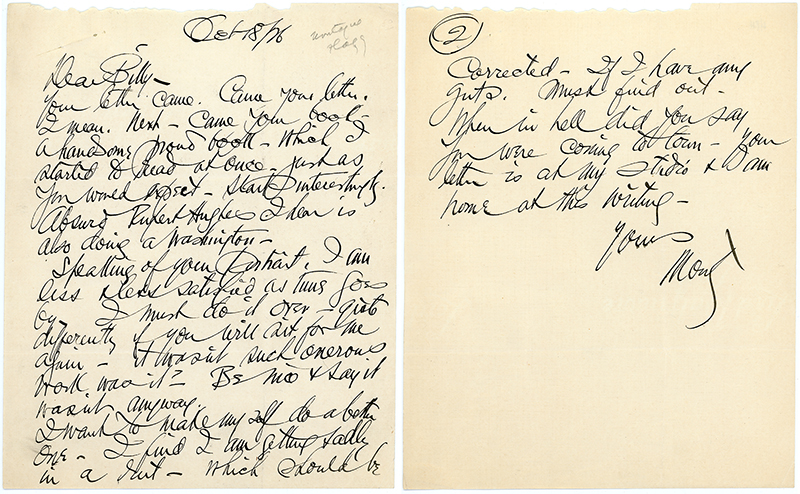 Oct 18/26
Montague
Glass
Dear Billy—
Your letter came. Came your letter.
I mean. Next— Came your book—
a handsome proud book— which I
started to read at once— just as
you would expect— starts interestingly.
Absurd Rupert Hughes I hear is
also doing a Washington—
Speaking of your portrait. I am
less & less satisfied as time goes
by— I must do it over— quite
differently if you will sit for me
again— it wasn't such onerous
work was it?— Be nice & say it
wasn't anyway.
I want to make myself do a better
one— I find I am getting sadly
in a rut— which should be
2
Corrected— If I have any
guts. Must find out—
When in hell did you say
you were coming to town— your
letter is at my studio & I am
home at this writing—
Yours
Mont